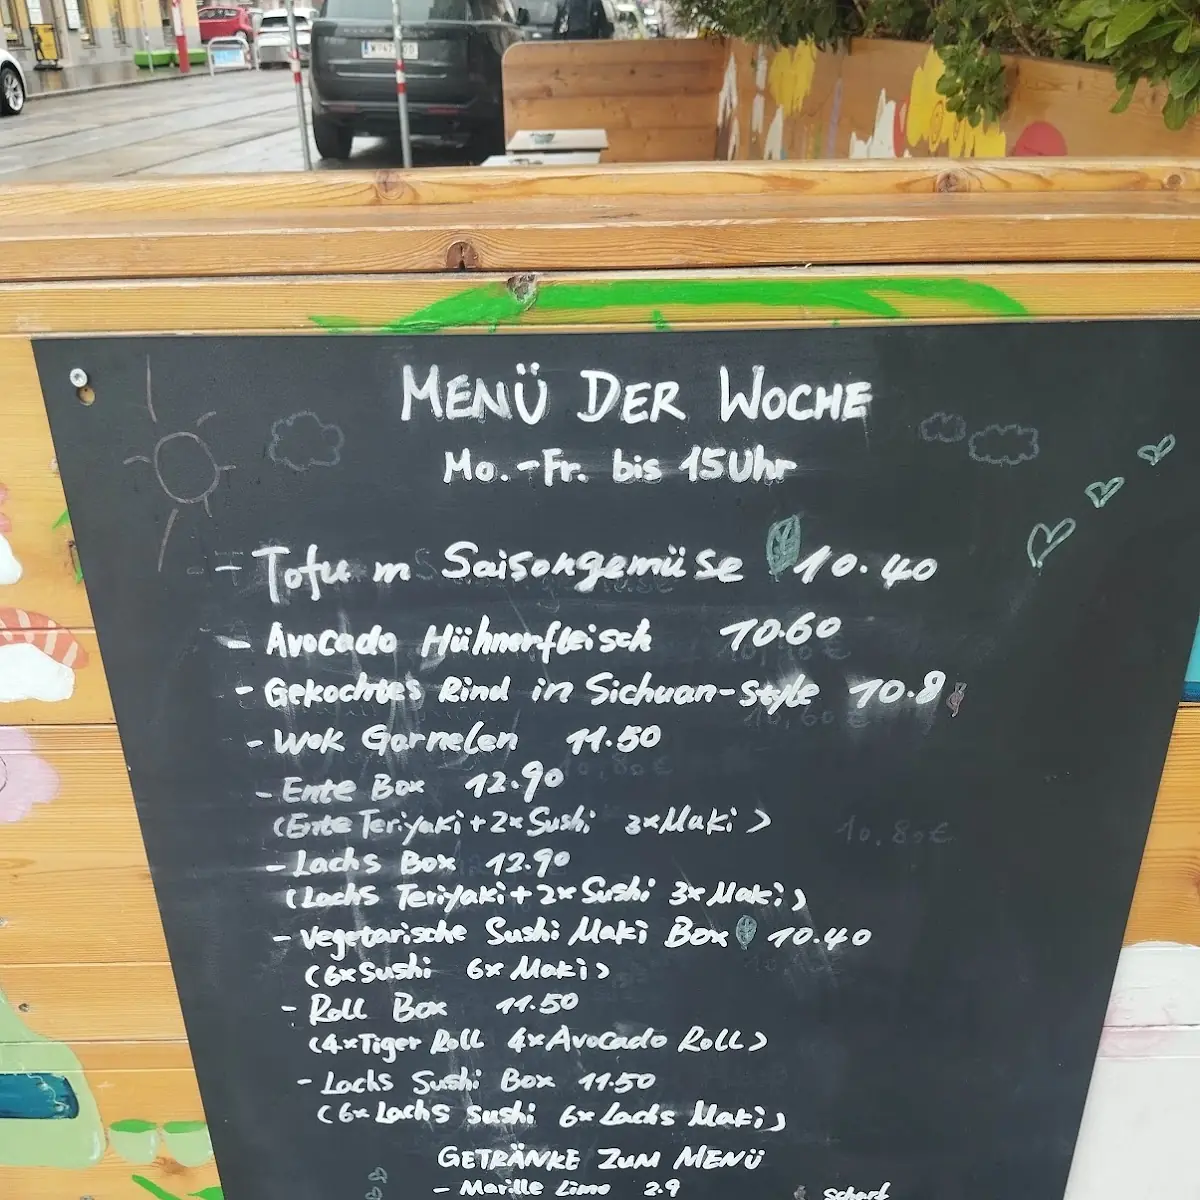 MENÜ DER WOCHE
Mo.-Fr. bis 15Uhr
- Tofu m Saisongemüse 10.40
- Avocado Hühnerfleisch 10.60
- Gekochtes Rind in Sichuan-Style 10.8
- Wok Garnelen 11.50
- Ente Box 12.90
(Ente Teriyaki + 2x Sushi 3x Maki)
10,80€
- Lachs Box 12.90
(Lachs Teriyaki + 2x Sushi 3x Maki)
- Vegetarische Sushi Maki Box 10.40
(6x Sushi 6x Maki)
- Roll Box 11.50
(4x Tiger Roll 4x Avocado Roll)
- Lachs Sushi Box 11.50
(6x Lachs Sushi 6x Lachs Maki)
GETRÄNKE ZUM MENÜ
- Marille Limo 2.9
Scharf